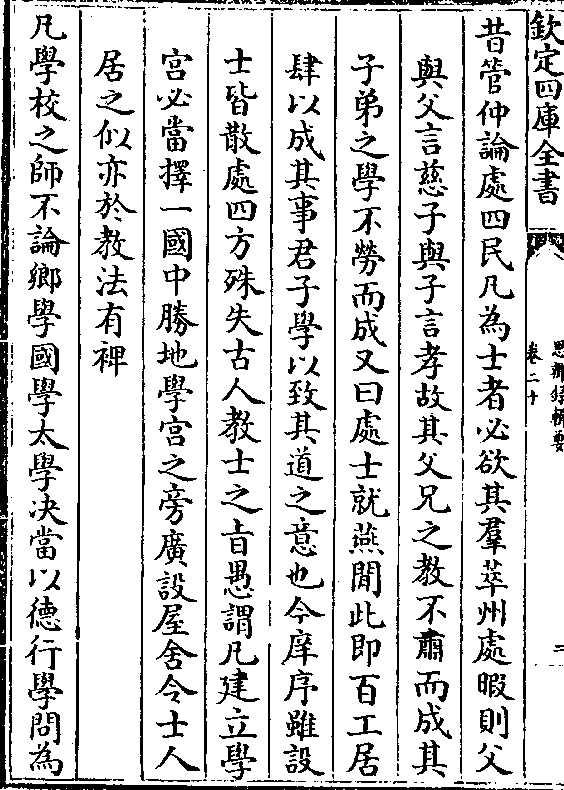 欽定四庫全書
思辨録輯要
卷二十
二
昔管仲論處四民凡為士者必欲其羣萃州處暇則父
與父言慈子與子言孝故其父兄之教不肅而成其
子弟之學不勞而成又曰處士就燕閒此即百工居
肆以成其事君子學以致其道之意也今庠序雖設
士皆散處四方殊失古人教士之㫖愚謂凡建立學
宮必當擇一國中勝地學宮之旁廣設屋舍令士人
居之似亦於教法有裨
凡學校之師不論鄉學國學太學决當以德行學問為